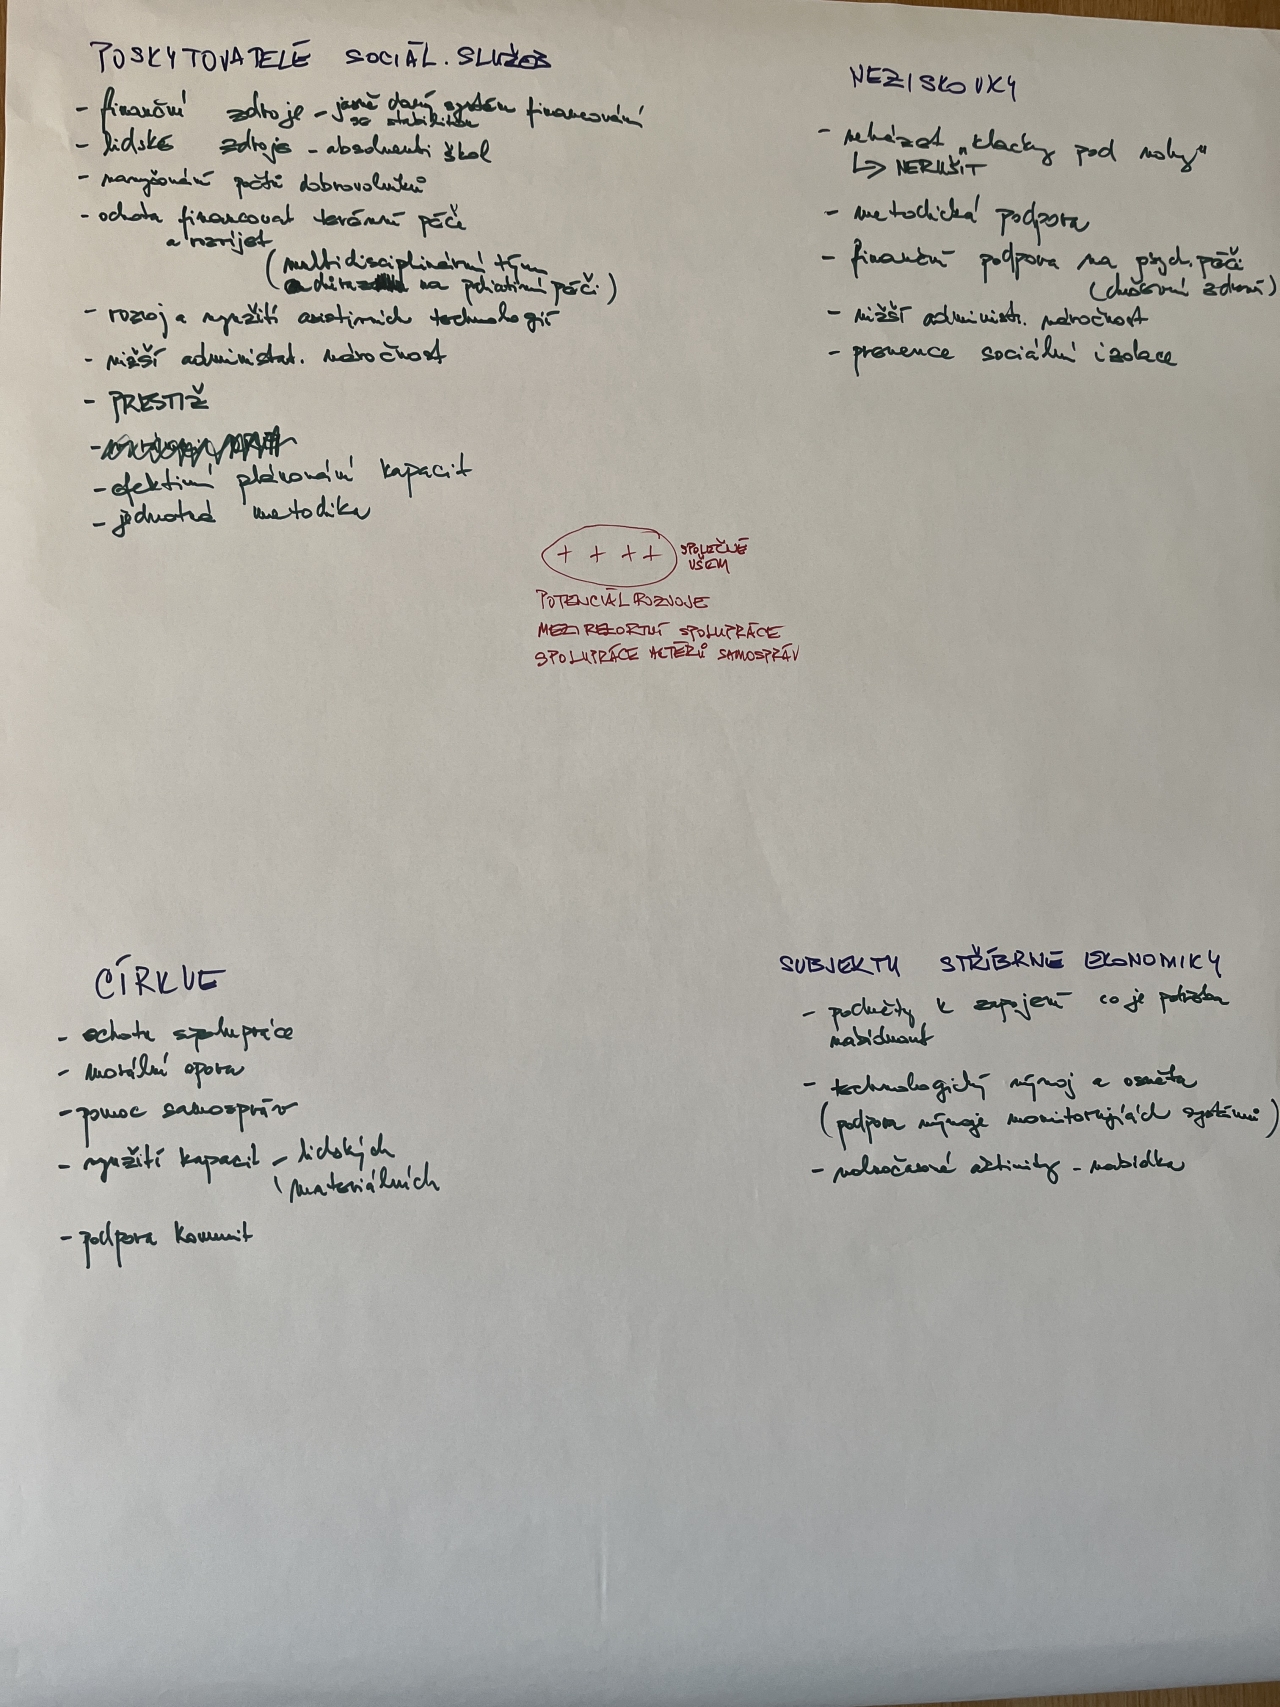 POSKYTOVATELÉ SOCIÁL. SLUŽEB
- finanční zdroje - jasně daný systém financování
se stabilitou
- lidské zdroje - absolventi škol
- navyšování počtu dobrovolníků
- ochota financovat terénní péči
a rozvíjet
(multidisciplinární tým
důraz na paliativní péči)
- rozvoj a využití asistivních technologií
- nižší administrat. náročnost
- PRESTIŽ
- efektivní plánování kapacit
- jednotná metodika
NEZISKOVKY
- neházet "klacky pod nohy"
↳ NERUŠIT
- metodická podpora
- finanční podpora na psych. péči
(duševní zdraví)
- nižší administr. náročnost
- prevence sociální izolace
+ + + + SPOLEČNÉ
VŠEM
POTENCIÁL ROZVOJE
MEZIREZORTNÍ SPOLUPRÁCE
SPOLUPRÁCE AKTÉRŮ SAMOSPRÁV
CÍRKVE
- ochota spolupráce
- morální opora
- pomoc samospráv
- využití kapacit - lidských
materiálních
- podpora komunit
SUBJEKTY STŘÍBRNÉ EKONOMIKY
- podněty k zapojení co je potřeba
nabídnout
- technologický vývoj a osvěta
(podpora vývoje monitorujících systémů)
- volnočasové aktivity - nabídka